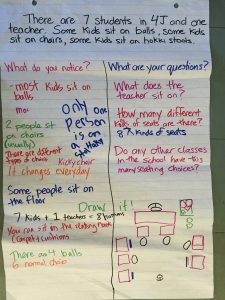 There are 7 students in 4J and one
teacher. Some kids sit on balls, some kids
sit on chairs, some kids sit on hokki stools.
What do you notice?
- most kids sit on
balls
2 people sit
on chairs
(usually)
There are different
types of chairs
Kicky chair
It changes everyday
Only one
Person
is on
a
Some people sit on
the floor
7 kids + 1 teachers = 8 humans
You can sit on the
There are 4 balls
6 normal chairs
What are your questions?
What does the
teacher sit on?
How many different
kinds of seats are there?
8 kinds of seats
Do any other classes
in the school have this
many seating choices?
Draw it!